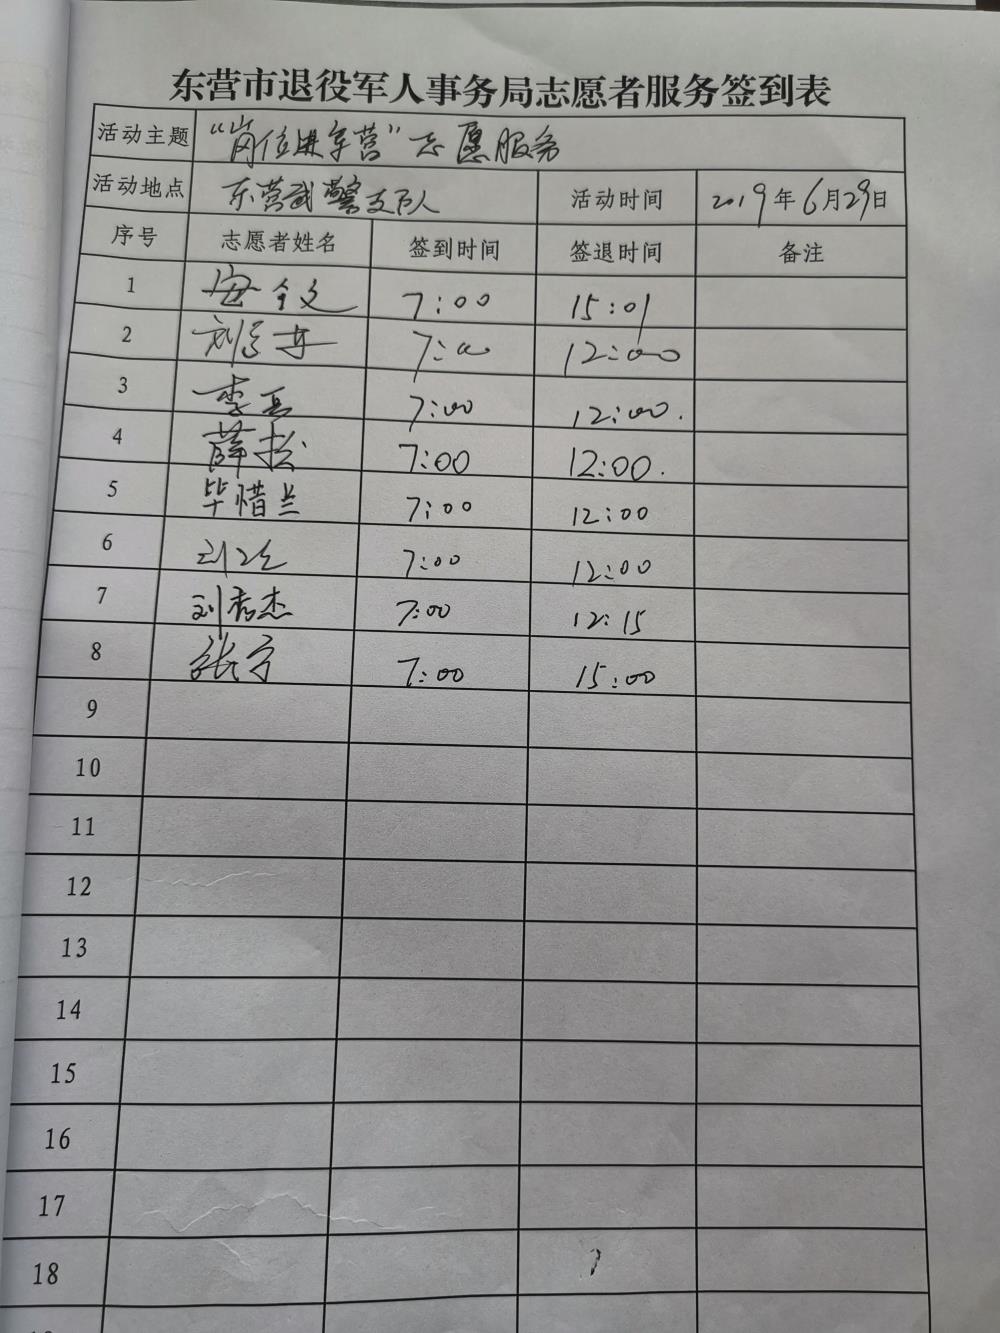 东营市退役军人事务局志愿者服务签到表
活动主题 “岗位进军营”志愿服务
活动地点 东营武警支队 活动时间 2019年6月29日
序号 志愿者姓名 签到时间 签退时间 备注
1 全文 7:00 15:01
2 刘 7:00 12:00
3 李兵 7:00 12:00.
4 薛松 7:00 12:00.
5 毕惜兰 7:00 12:00
6 刘 7:00 12:00
7 刘秀杰 7:00 12:15
8 张方 7:00 15:00
9
10
11
12
13
14
15
16
17
18